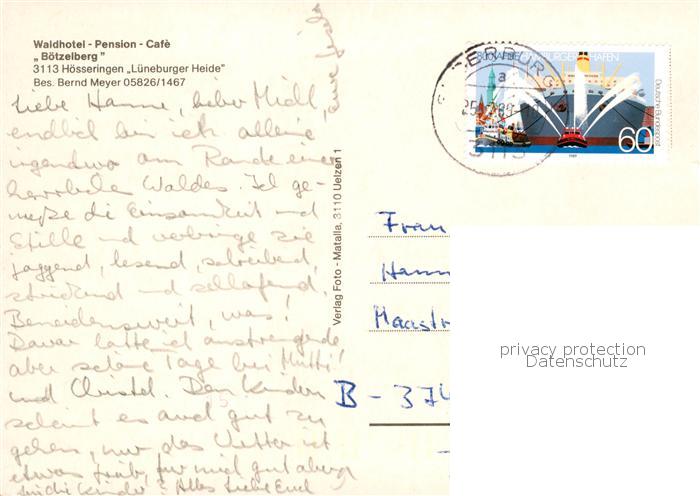 Waldhotel - Pension - Cafè
„Bötzelberg"
3113 Hösseringen „Lüneburger Heide"
Bes. Bernd Meyer 05826/1467
Liebe Hanne, lieber Michl,
endlich bin ich alleine
irgendwo am Rande eines
herrlichen Waldes. Ich ge-
nieße die Einsamkeit und
Stille und verbringe sie
joggend, lesend, schreibend,
strickend und schlafend.
Beneidenswert, was!
Davor hatte ich anstrengende,
aber schöne Tage bei Mutti
und Christel. Den Kindern
scheint es auch gut zu
gehen, nur das Wetter ist
etwas trüb, für mich gut aber
für die Kinder? Alles Liebe Euch
Verlag Foto - Matalla, 3110 Uelzen 1
HAMBURGER HAFEN
Deutsche Bundespost
60
1989
3113
Frau
Hann
Maastr
B - 374
privacy protection
Datenschutz